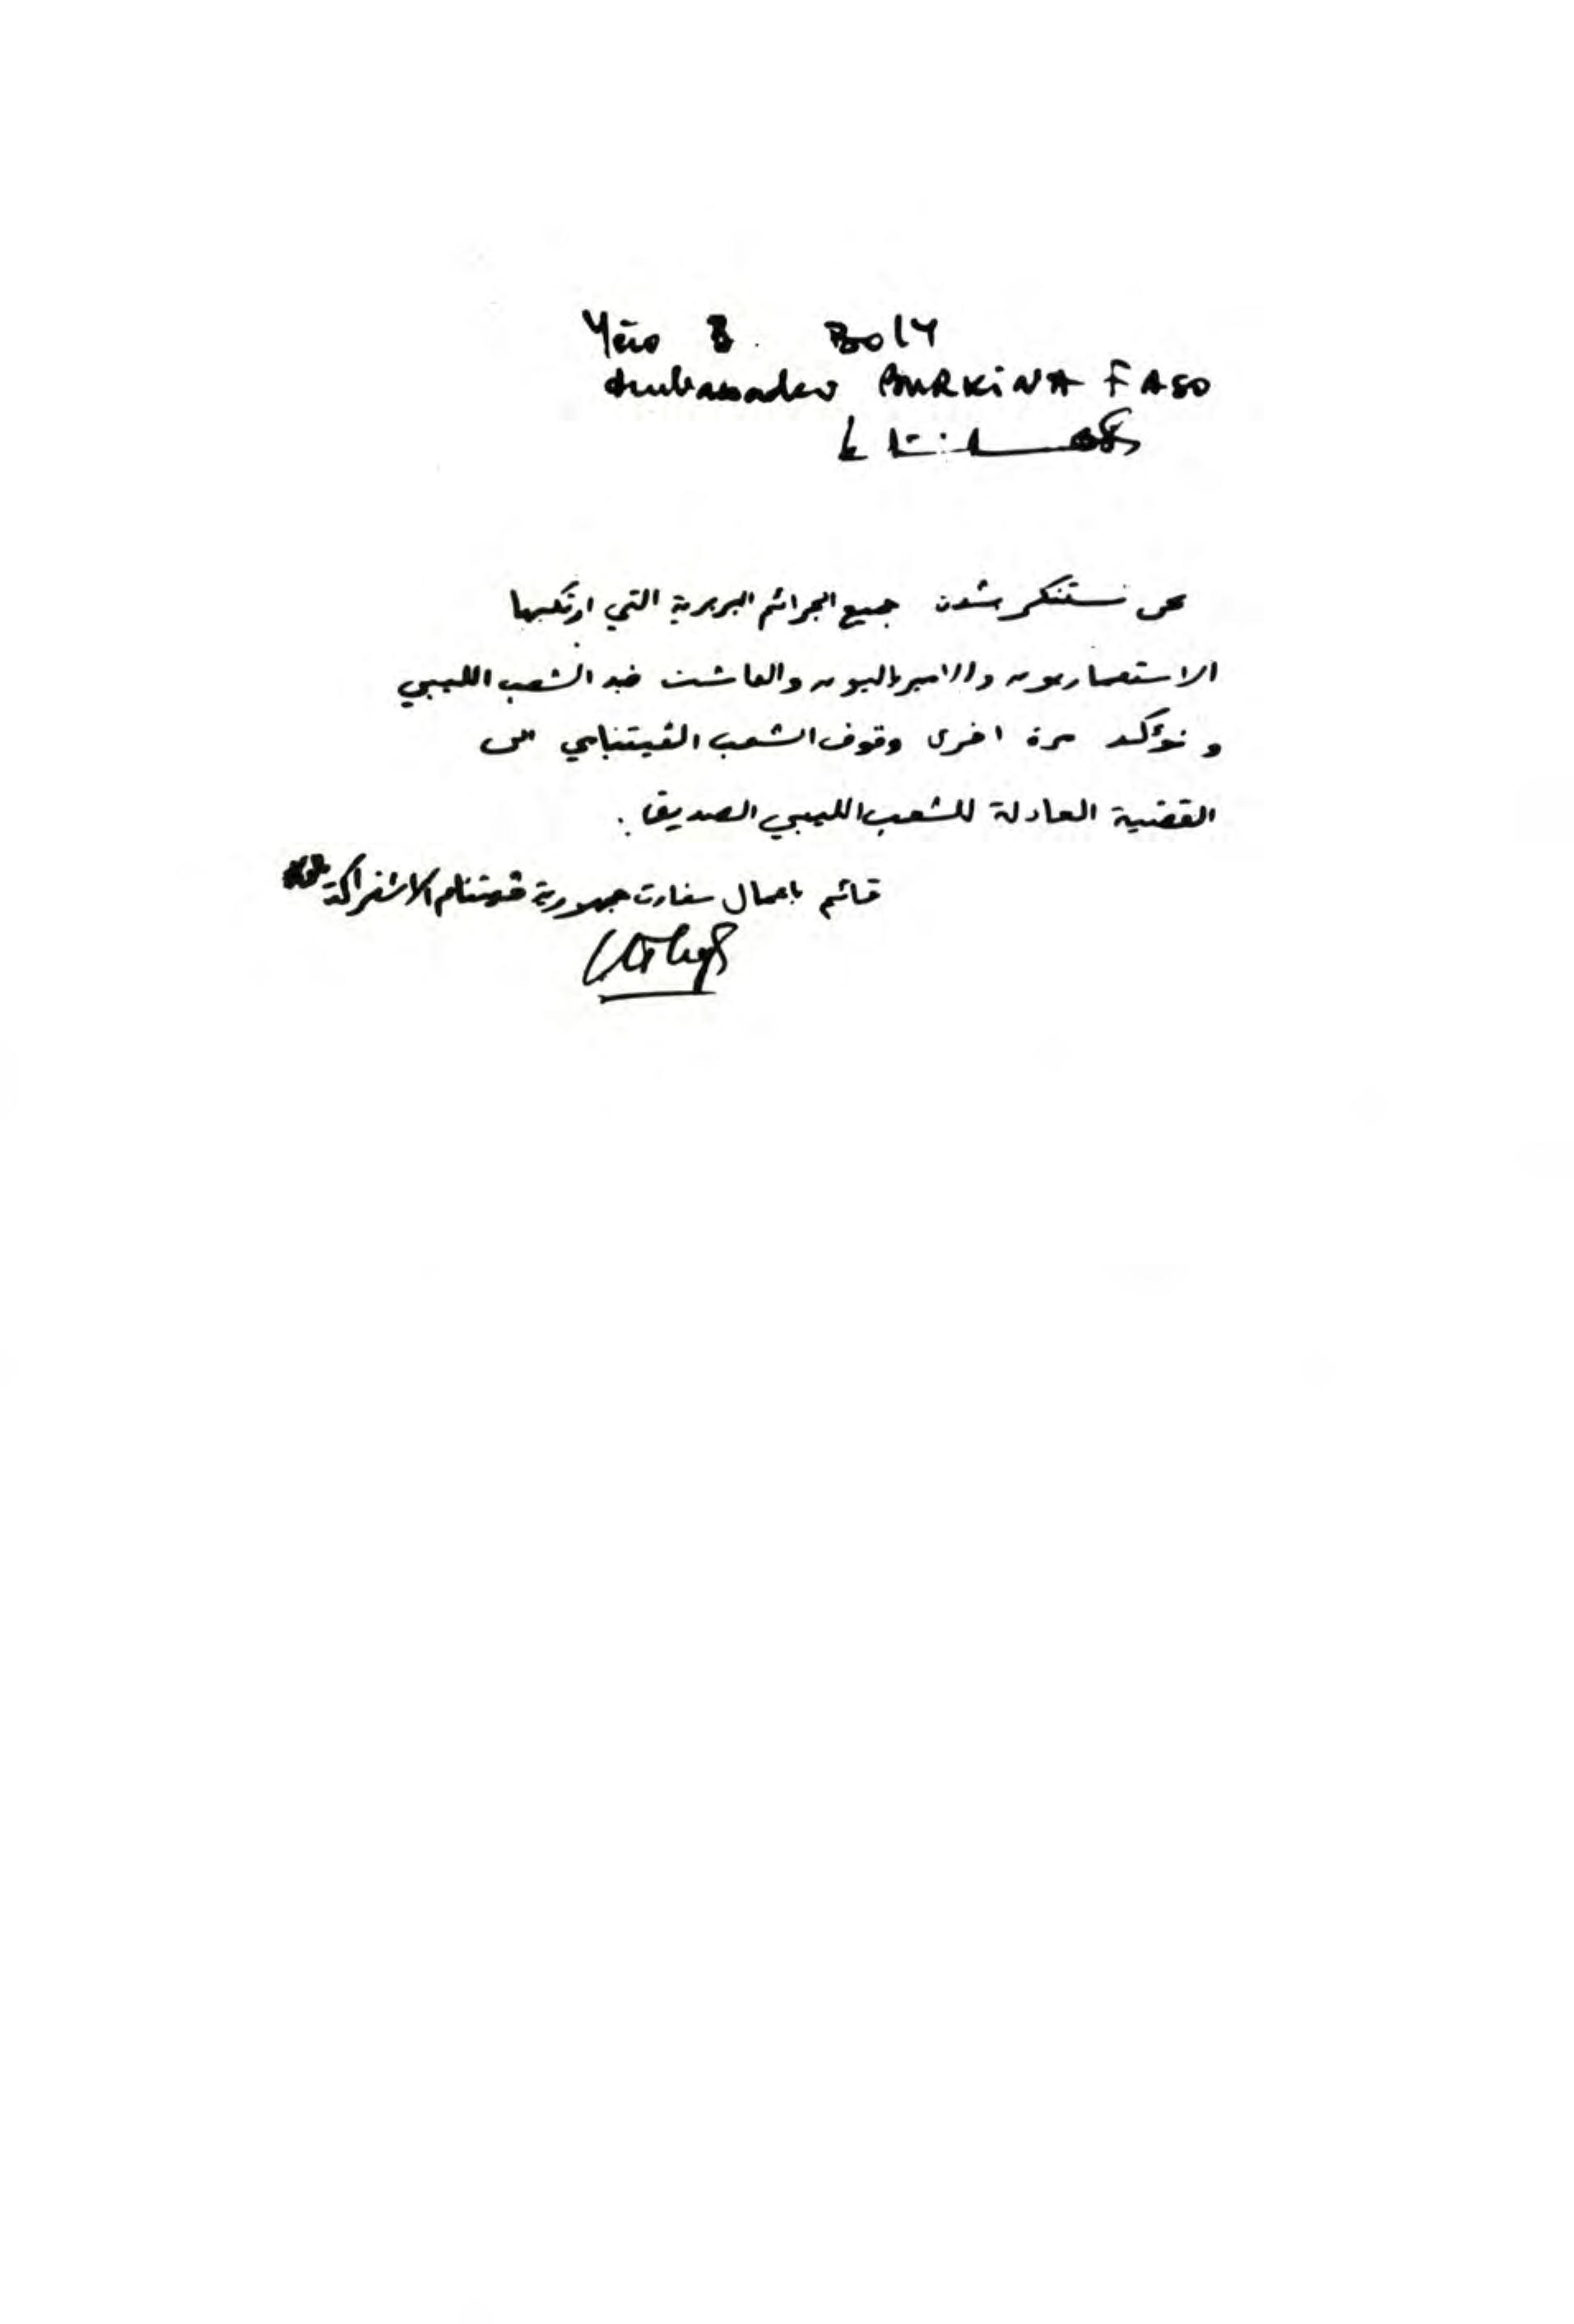 Yéro B. BOLY
Ambassadeur BURKINA FASO
نحن نستنكر بشدة جميع الجرائم البربرية التي ارتكبها
الاستعماريون والامبرياليون والفاشست ضد الشعب الليبي
و نؤكد مرة اخرى وقوف الشعب الفيتنامي الى
القضية العادلة للشعب الليبي الصديق.
قائم باعمال سفارة جمهورية فيتنام الاشتراكية